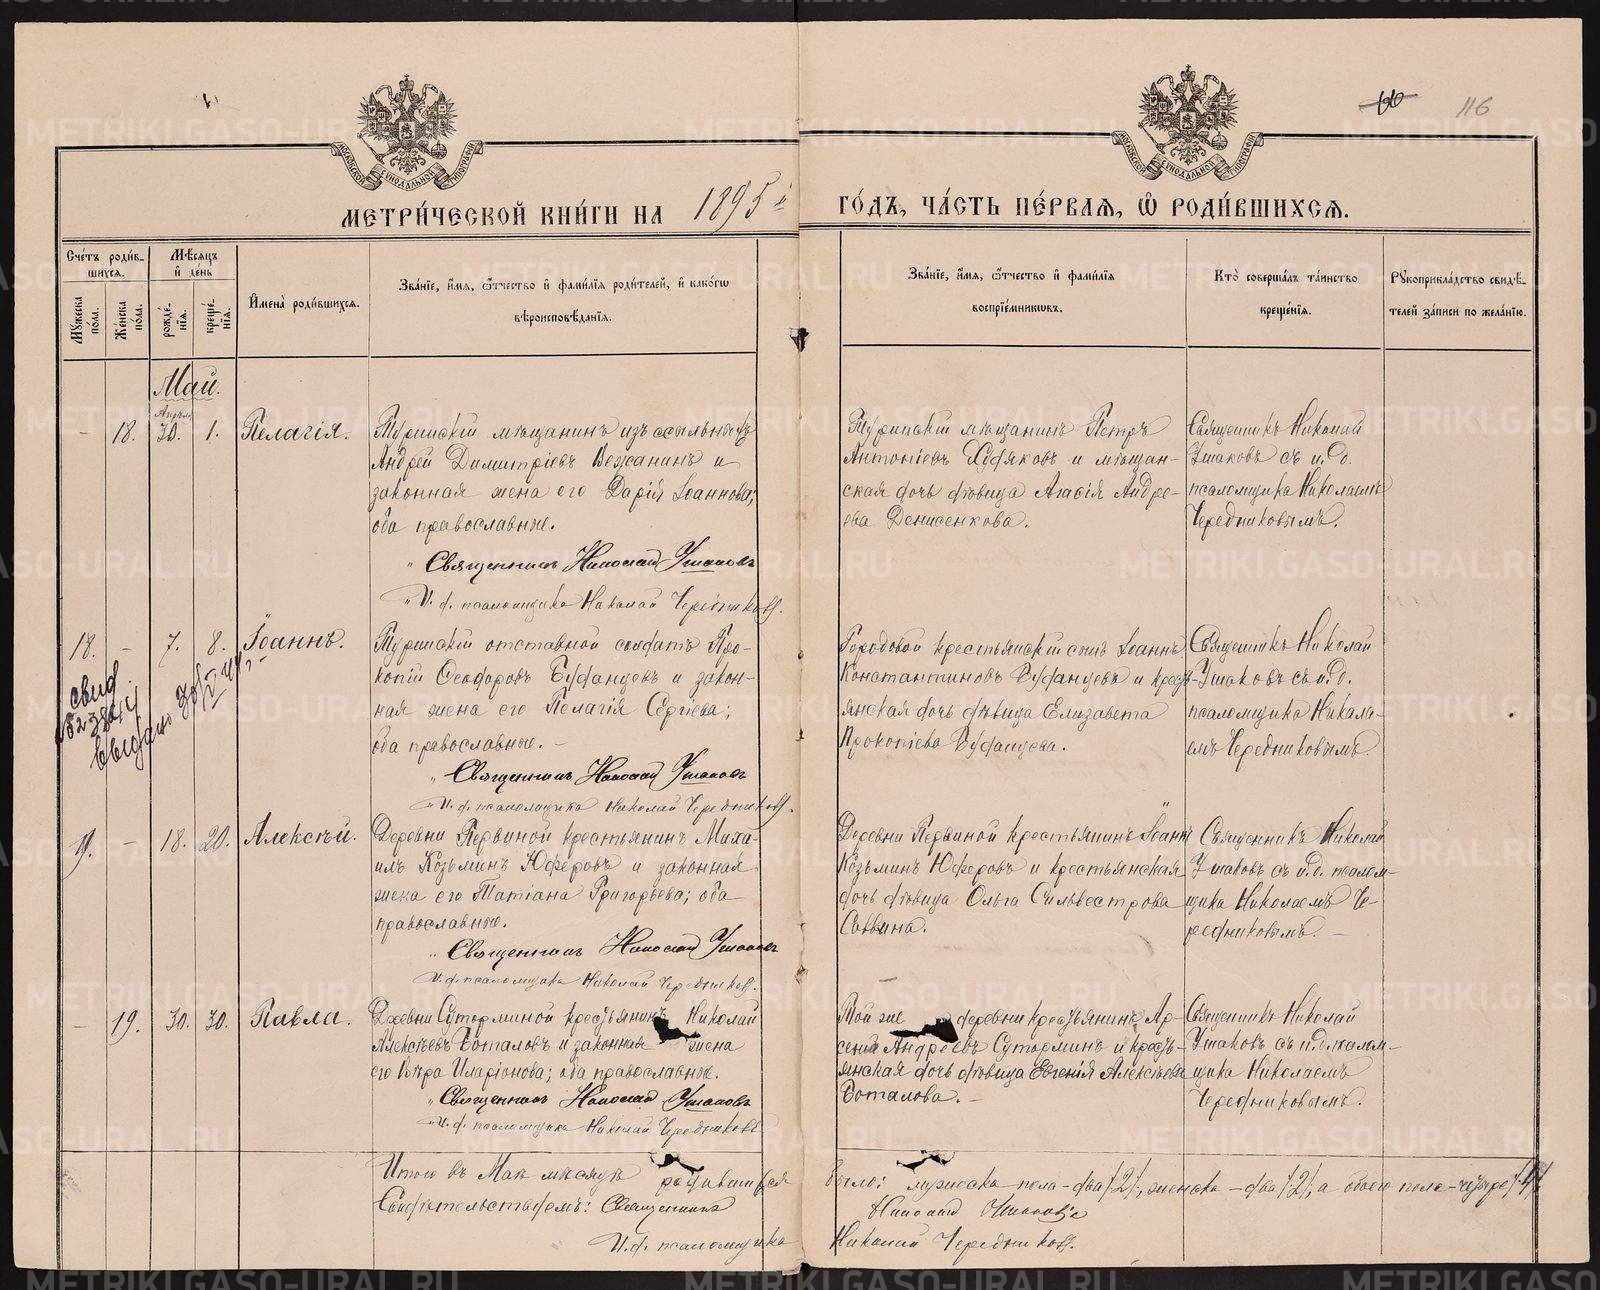 116
МОСКОВСКОЙ СѴНОДАЛЬНОЙ ТИПОГРАФІИ
МОСКОВСКОЙ СѴНОДАЛЬНОЙ ТИПОГРАФІИ
МЕТРИ́ЧЕСКОЙ КНИ́ГИ НА 1895й ГО́ДЪ, ЧА́СТЬ ПЕ́РВАѦ, Ѡ҆ РОДИ́ВШИХСѦ.
Сче́тъ роди́вшихся.
Мꙋ́жеска по́ла.
Же́нска по́ла.
Мѣ́сяцъ и҆ де́нь
рожде́нїя.
креще́нїя.
И҆мена̀ роди́вшихся.
Зва́нїе, и҆́мя, ѻ҆́тчество и҆ фами́лїя роди́телей, и҆ како́гѡ
вѣроисповѣ́данїя.
Зва́нїе, и҆́мя, ѻ҆́тчество и҆ фами́лїя
воспрїе́мникѡвъ.
Кто̀ соверша́лъ та́инство
креще́нїя.
Рꙋкоприкла́дство свидѣ́телей за́писи по жела́нїю.
Май.
Апрѣля
- 18. 30. 1. Пелагія.
Туринскій мѣщанинъ изъ ссыльныхъ
Андрей Димитріевъ Вежанинъ и
законная жена его Дарія Іоаннова;
оба православные.
Священникъ Николай Ушаковъ
И. д. псаломщика Николай Чередниковъ.
Туринскій мѣщанинъ Петръ
Антоніевъ Худяковъ и мѣщан-
ская дочь дѣвица Агафія Андре-
ева Денисенкова.
Священникъ Николай
Ушаковъ съ и. д.
псаломщика Николаемъ
Чередниковымъ.
18. - 7. 8. Іоаннъ.
свид
выдано
Туринскій отставной солдатъ Про-
копій Ѳеодоровъ Буданцевъ и закон-
ная жена его Пелагія Сергіева;
оба православные. -
Священникъ Николай Ушаковъ
И. д. псаломщика Николай Чередниковъ.
Городовой крестьянскій сынъ Іоаннъ
Константиновъ Буданцевъ и кресть-
янская дочь дѣвица Елизавета
Прокопіева Буданцева.
Священникъ Николай
Ушаковъ съ и. д.
псаломщика Никола-
емъ Чередниковымъ.
19. - 18. 20. Алексѣй.
Деревни Первиной крестьянинъ Миха-
илъ Козьминъ Юферовъ и законная
жена его Татіана Григорьева; оба
православные.
Священникъ Николай Ушаковъ
И. д. псаломщика Николай Чередниковъ.
Деревни Первиной крестьянинъ Іоаннъ
Козьминъ Юферовъ и крестьянская
дочь дѣвица Ольга Сильвестрова
Саввина.
Священникъ Николай
Ушаковъ съ и. д. псалом-
щика Николаемъ Че-
редниковымъ. -
- 19. 30. 30. Павла.
Деревни Суторминой крестьянинъ Николай
Алексѣевъ Боталовъ и законная жена
его Вѣра Иларіонова; оба православные.
Священникъ Николай Ушаковъ
И. д. псаломщика Николай Чередниковъ
Той же деревни крестьянинъ Ар-
сеній Андреевъ Суторминъ и кресть-
янская дочь дѣвица Евгенія Алексѣева
Боталова. -
Священникъ Николай
Ушаковъ съ и. д. псалом-
щика Николаемъ
Чередниковымъ.
Итого въ Маѣ мѣсяцѣ родившихся было: мужеска пола - два /2/, женска - два /2/, а обоего пола - четыре /4/
Свидѣтельствуемъ: Священникъ Николай Ушаковъ
И. д. псаломщика Николай Чередниковъ.
METRIKI.GASO-URAL.RU